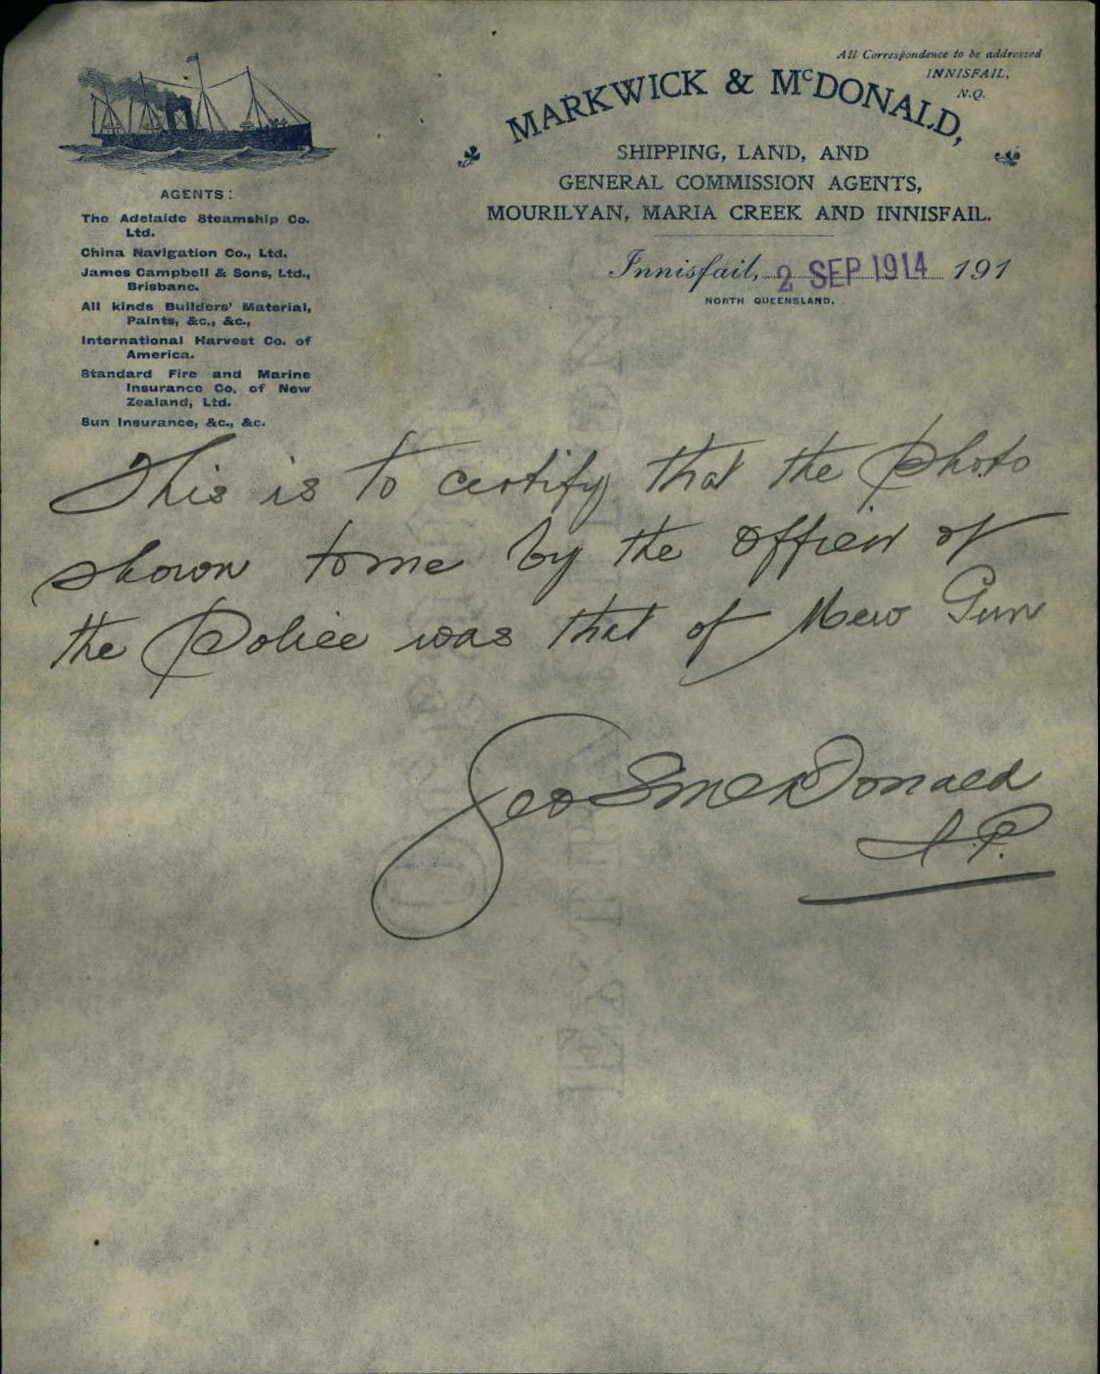 All Correspondence to be addressed
INNISFAIL,
N.Q.
MARKWICK & McDONALD,
SHIPPING, LAND, AND
GENERAL COMMISSION AGENTS,
MOURILYAN, MARIA CREEK AND INNISFAIL.
Innisfail, 2 SEP 1914 191
NORTH QUEENSLAND.
AGENTS:
The Adelaide Steamship Co.
Ltd.
China Navigation Co., Ltd.
James Campbell & Sons, Ltd.,
Brisbane.
All kinds Builders' Material,
Paints, &c., &c.,
International Harvest Co. of
America.
Standard Fire and Marine
Insurance Co. of New
Zealand, Ltd.
Sun Insurance, &c., &c.
This is to certify that the photo
shown to me by the officer of
the Police was that of Mew Gun
Geo S McDonald
J.P.